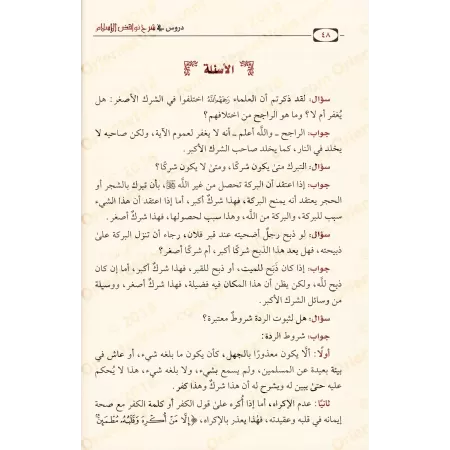 ٤٨
دروس في شرح نواقض الإسلام
الأسئلة
سؤال: لقد ذكرتم أن العلماء رَحِمَهُمُ اللَّهُ اختلفوا في الشرك الأصغر: هل
يُغفر أم لا؟ وما هو الراجح من اختلافهم؟
جواب: الراجح ـ واللَّه أعلم ـ أنه لا يغفر لعموم الآية، ولكن صاحبه لا
يخلد في النار، كما يخلد صاحب الشرك الأكبر.
سؤال: التبرك متىٰ يكون شركًا، ومتىٰ لا يكون شركًا؟
جواب: إذا اعتقد أن البركة تحصل من غير اللَّه ﷻ، بأن تبرك بالشجر أو
الحجر يعتقد أنه يمنح البركة، فهذا شركٌ أكبر، أما إذا اعتقد أن هذا الشيء
سبب للبركة، والبركة من اللَّه، وهذا سبب لحصولها، فهذا شركٌ أصغر.
سؤال: لو ذبح رجلٌ أضحيته عند قبر فلان، رجاء أن تنزل البركة علىٰ
ذبيحته، فهل يعد هذا الذبح شركًا أكبر، أم شركًا أصغر؟
جواب: إذا كان ذَبَح للميت، أو ذبح للقبر، فهذا شركٌ أكبر، أما إن كان
ذبح للَّه، ولكن يظن أن هذا المكان فيه فضيلة، فهذا شركٌ أصغر، ووسيلة
من وسائل الشرك الأكبر.
سؤال: هل لثبوت الردة شروطٌ معتبرة؟
جواب: شروط الردة:
أولًا: ألَّا يكون معذورًا بالجهل، كأن يكون ما بلغه شيء، أو عاش في
بيئة بعيدة عن المسلمين، ولم يسمع بشيء، ولا بلغه شيء، هذا لا يُحكم
عليه حتىٰ يبين له ويشرح له أن هذا شركٌ وهذا كفر.
ثانيًا: عدم الإكراه، أما إذا أُكره علىٰ قول الكفر أو كلمة الكفر مع صحة
إيمانه في قلبه وعقيدته، فهُذا يعذر بالإكراه، ﴿إِلَّا مَنْ أُكْرِهَ وَقَلْبُهُ مُطْمَئِنٌّ